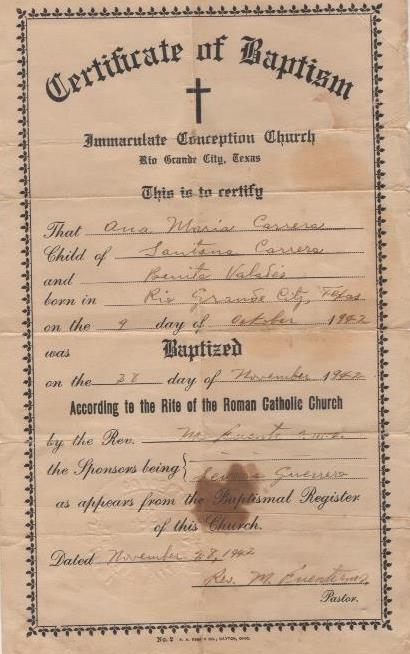 Certificate of Baptism
Immaculate Conception Church
Rio Grande City, Texas
This is to certify
That Ana Maria Carrera
Child of Santana Carrera
and Benita Valadés
born in Rio Grande City, Texas
on the 9 day of October 1942
was Baptized
on the 28 day of November 1942
According to the Rite of the Roman Catholic Church
by the Rev. M.
the Sponsors being Guerrero
as appears from the Baptismal Register
of this Church.
Dated November 28, 1942
Rev. M.
Pastor.
No. 2